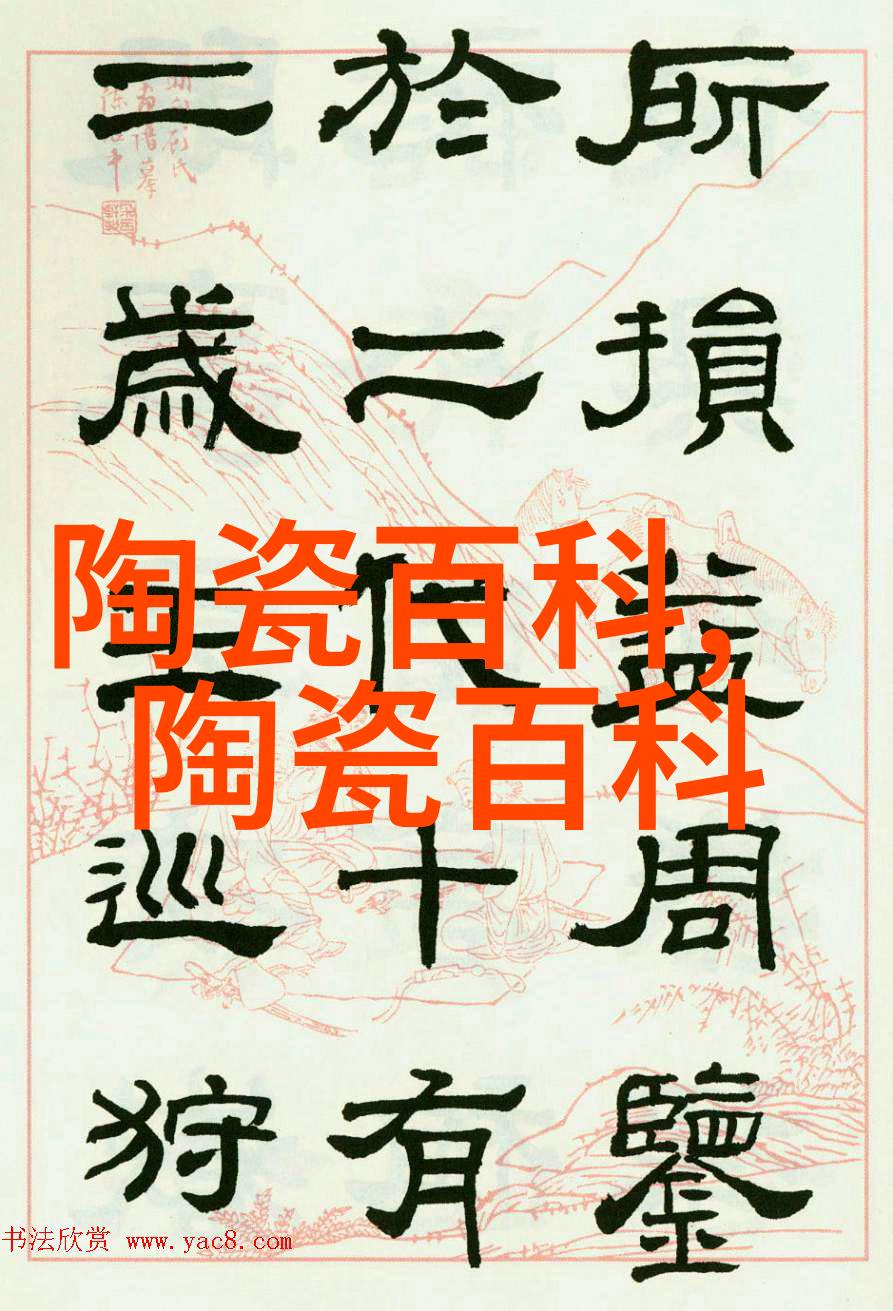 所損益周鑒
於二代十有
二歲王巡狩
陶瓷百科,
陶瓷百科
书法欣赏 www.yac8.com